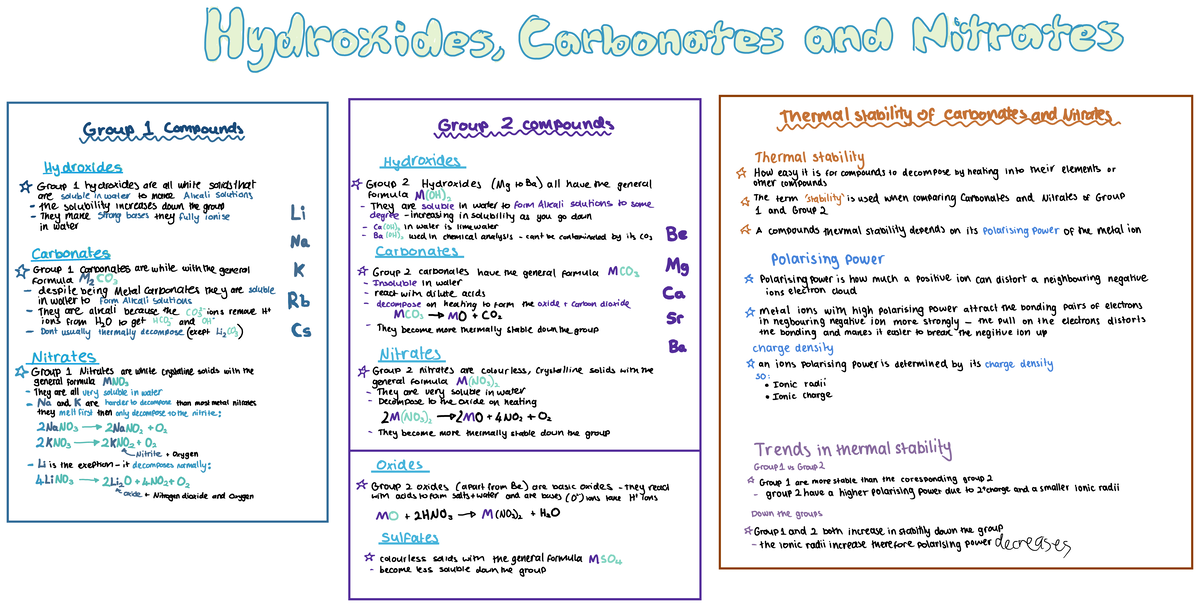 Hydroxides, Carbonates and Nitrates
Group 1 Compounds
Hydroxides
Group 1 hydroxides are all white solids that
are soluble in water to make Alkali solutions
- the solubility increases down the group
- They make strong bases they fully ionise
in water
Carbonates
Group 1 Carbonates are while with the general
formula M₂CO₃
- despite being Metal Carbonates they are soluble
in water to form Alkali solutions
- They are alkali because the CO₃²⁻ ions remove H⁺
ions from H₂O to get HCO₃⁻ and OH⁻
- Dont usually thermally decompose (exept Li₂CO₃)
Nitrates
Group 1 Nitrates are white crystaline solids with the
general formula MNO₃
- They are all very soluble in water
- Na and K are harder to decompose than most metal nitrates
they melt first then only decompose to the nitrite:
2NaNO₃ → 2NaNO₂ + O₂
2KNO₃ → 2KNO₂ + O₂
Nitrite + Oxygen
- Li is the exeption - it decomposes normally:
4LiNO₃ → 2Li₂O + 4NO₂ + O₂
oxide + Nitrogen dioxide and Oxygen
Li
Na
K
Rb
Cs
Group 2 compounds
Hydroxides
Group 2 Hydroxides (Mg to Ba) all have the general
formula M(OH)₂
- They are soluble in water to form Alkali solutions to some
degree - increasing in solubility as you go down
- Ca(OH)₂ in water is limewater
- Ba(OH)₂ used in chemical analysis - cant be contaminated by its CO₂
Carbonates
Group 2 carbonates have the general formula MCO₃
- Insoluble in water
- react with dilute acids
- decompose on heating to form the oxide + carbon dioxide
MCO₃ → MO + CO₂
- They become more thermally stable down the group
Nitrates
Group 2 nitrates are colourless, Crystalline solids with the
general formula M(NO₃)₂
- They are very soluble in water
- Decompose to the oxide on heating
2M(NO₃)₂ → 2MO + 4NO₂ + O₂
- They become more thermally stable down the group
Be
Mg
Ca
Sr
Ba
Oxides
Group 2 oxides (apart from Be) are basic oxides - they react
with acids to form salts + water and are bases (O²⁻) ions take H⁺ ions
MO + 2HNO₃ → M(NO₃)₂ + H₂O
Sulfates
colourless solids with the general formula MSO₄
- become less soluble down the group
Thermal stability of carbonates and Nitrates
Thermal stability
How easy it is for compounds to decompose by heating into their elements or
other compounds
The term 'stability' is used when comparing Carbonates and Nitrates of Group
1 and Group 2
A compounds thermal stability depends on its Polarising Power of the metal ion
Polarising Power
Polarising power is how much a positive ion can distort a neighbouring negative
ions electron cloud
metal ions with high polarising power attract the bonding pairs of electrons
in negbouring negative ion more strongly - the pull on the electrons distorts
the bonding and makes it easier to break the negitive ion up
charge density
an ions polarising power is determined by its charge density
so:
• Ionic radii
• Ionic charge
Trends in thermal stability
Group 1 vs Group 2
Group 1 are more stable than the coresponding group 2
- group 2 have a higher polarising power due to 2⁺ charge and a smaller ionic radii
Down the groups
Group 1 and 2 both increase in stabiltly down the group
- the ionic radii increase therefore polarising power decreases